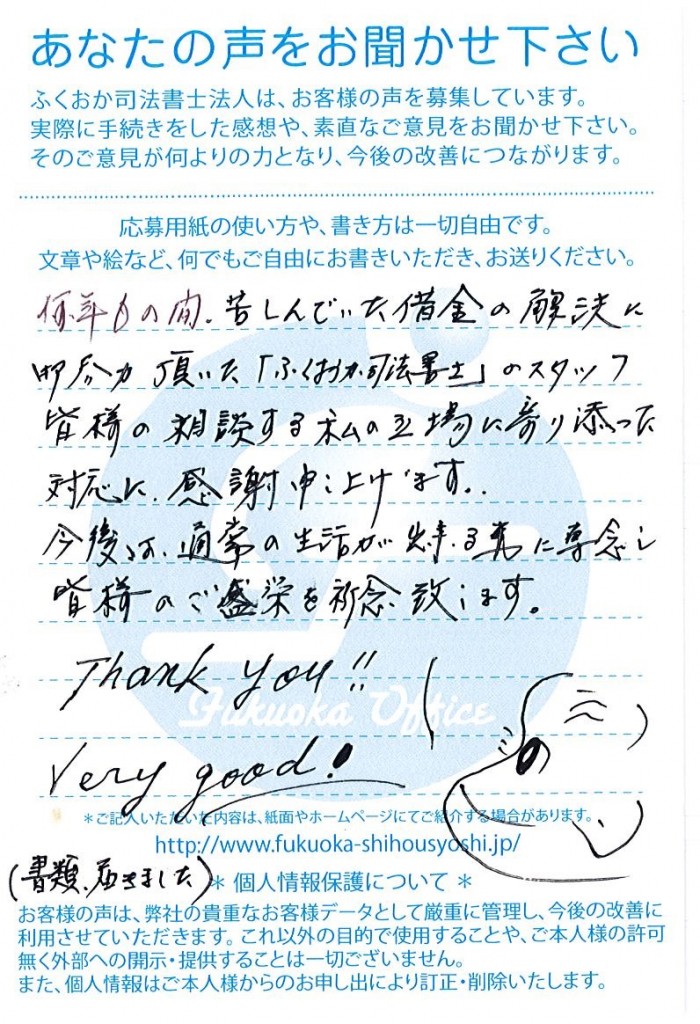 あなたの声をお聞かせ下さい
ふくおか司法書士法人は、お客様の声を募集しています。
実際に手続きをした感想や、素直なご意見をお聞かせ下さい。
そのご意見が何よりの力となり、今後の改善につながります。
応募用紙の使い方や、書き方は一切自由です。
文章や絵など、何でもご自由にお書きいただき、お送りください。
何年もの間、苦しんでいた借金の解決に
頂いた「ふくおか司法書士」のスタッフ
皆様の相談する私の立場に寄り添った
対応に、感謝申し上げます。
今後は、通常の生活が る事に専念し
皆様のご盛栄を祈念致します。
Thank you!!
Fukuoka Office
Very good!
＊ご記入いただいた内容は、紙面やホームページにてご紹介する場合があります。
http://www.fukuoka-shihousyoshi.jp/
(書類、届きました)
＊ 個人情報保護について ＊
お客様の声は、弊社の貴重なお客様データとして厳重に管理し、今後の改善に
利用させていただきます。これ以外の目的で使用することや、ご本人様の許可
無く外部への開示・提供することは一切ございません。
また、個人情報はご本人様からのお申し出により訂正・削除いたします。